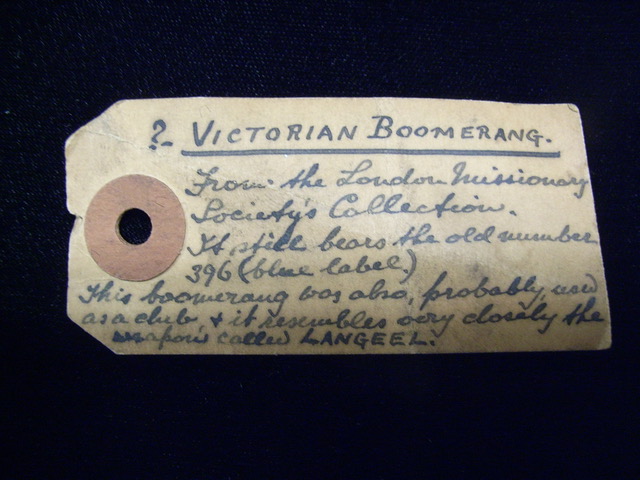 ? VICTORIAN BOOMERANG.
From the London Missionary
Society's Collection.
It still bears the old number
396 (blue label.)
This boomerang was also, probably, used
as a club, & it resembles very closely the
weapons called LANGEEL.